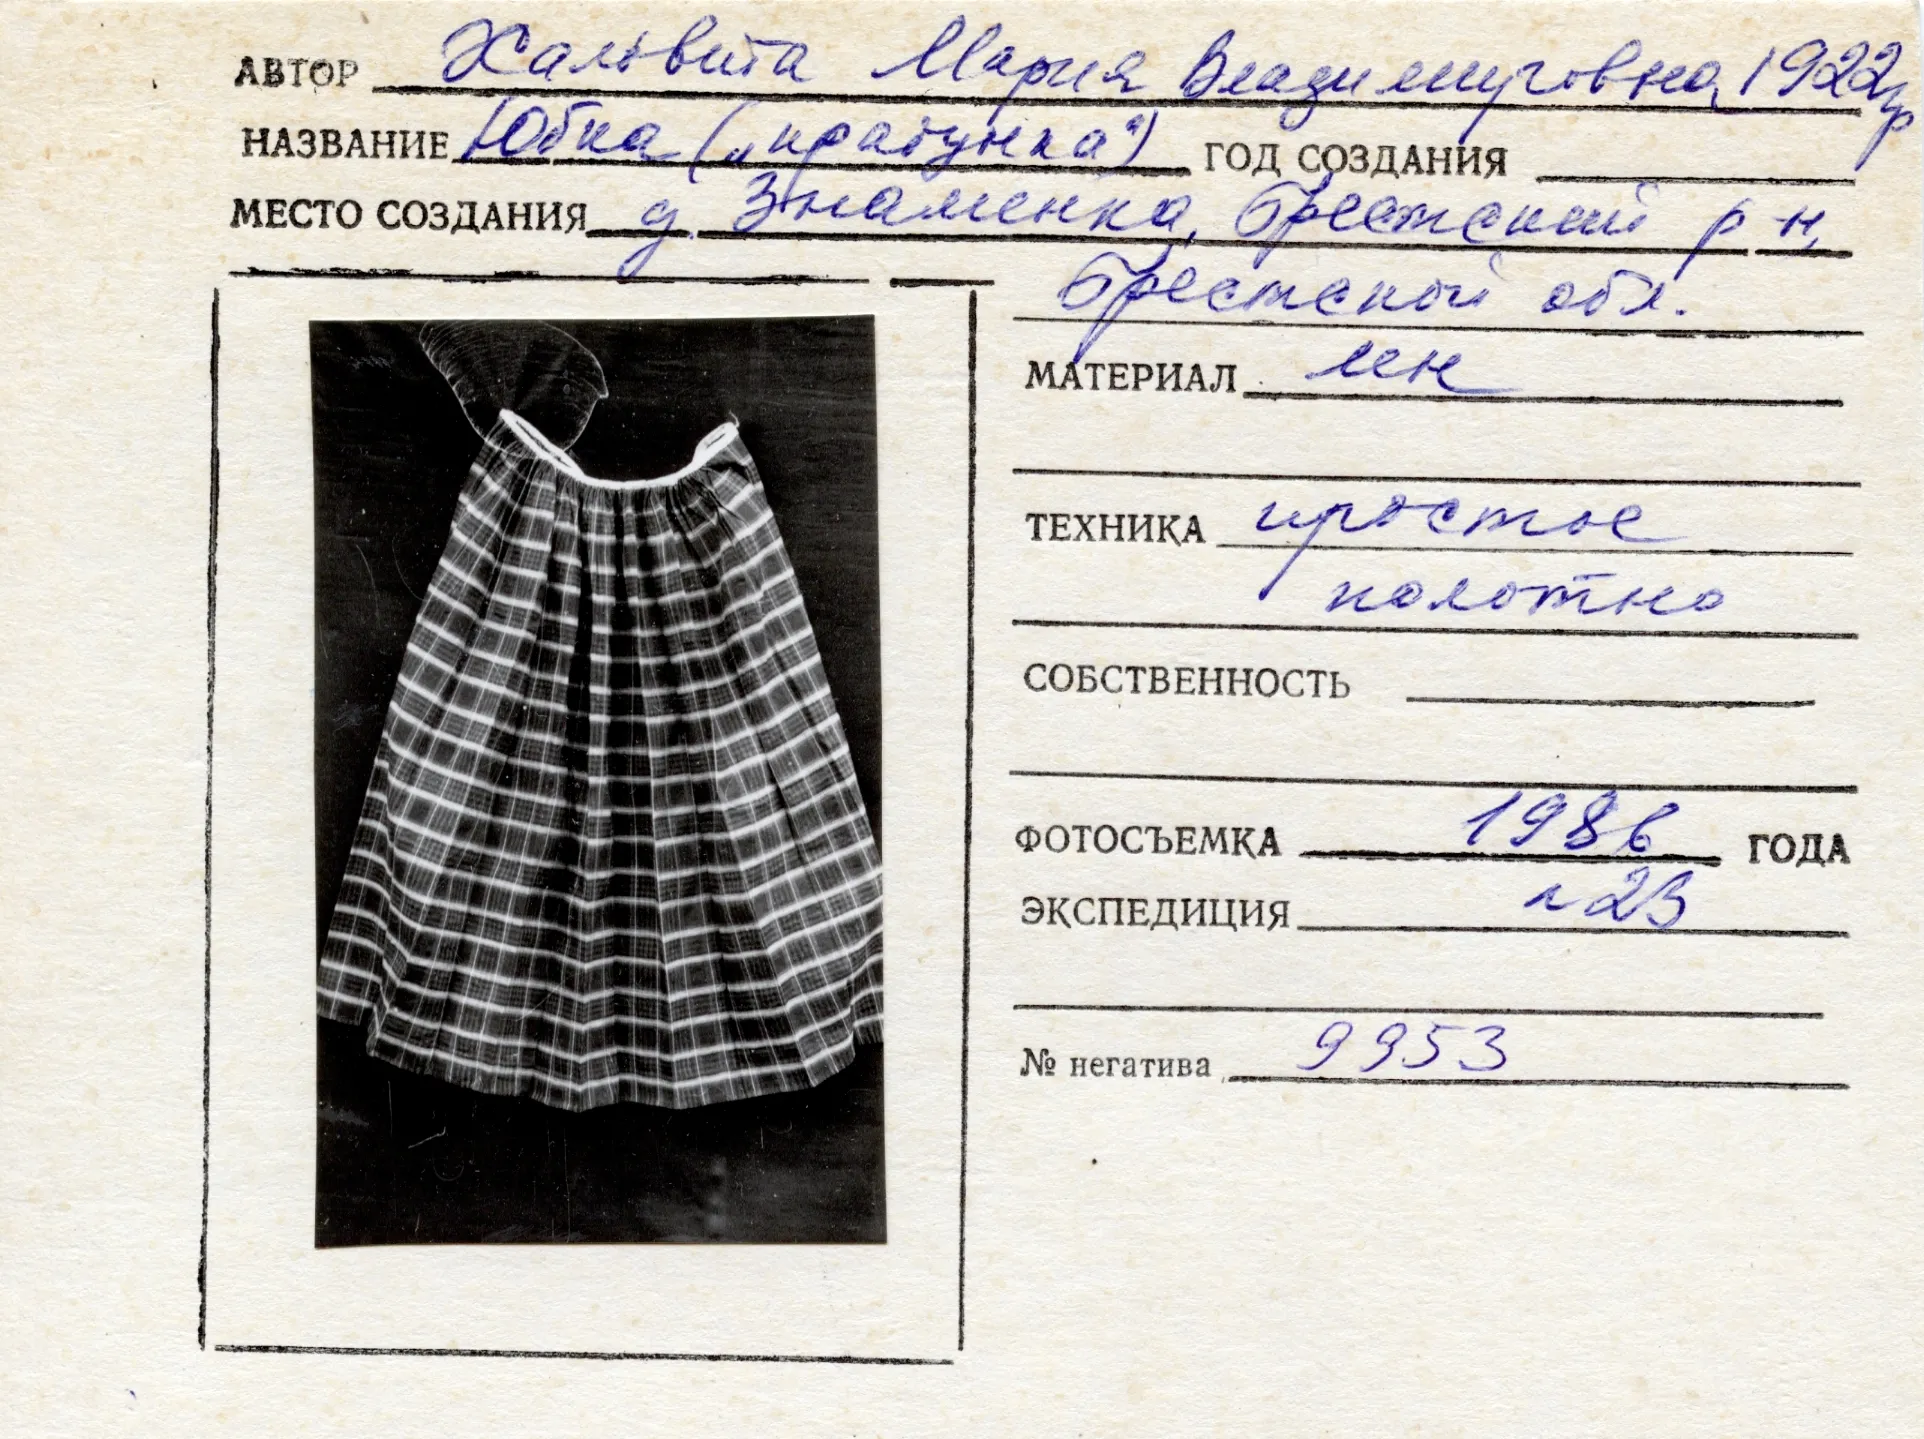 АВТОР Хальвита Мария Владимировна, 1922 гр
НАЗВАНИЕ Юбка („кратунка“) ГОД СОЗДАНИЯ
МЕСТО СОЗДАНИЯ д. Знаменка, Брестский р-н,
Брестской обл.
МАТЕРИАЛ лен
ТЕХНИКА простое
полотно
СОБСТВЕННОСТЬ
ФОТОСЪЕМКА 1986 ГОДА
ЭКСПЕДИЦИЯ 23
№ негатива 9953